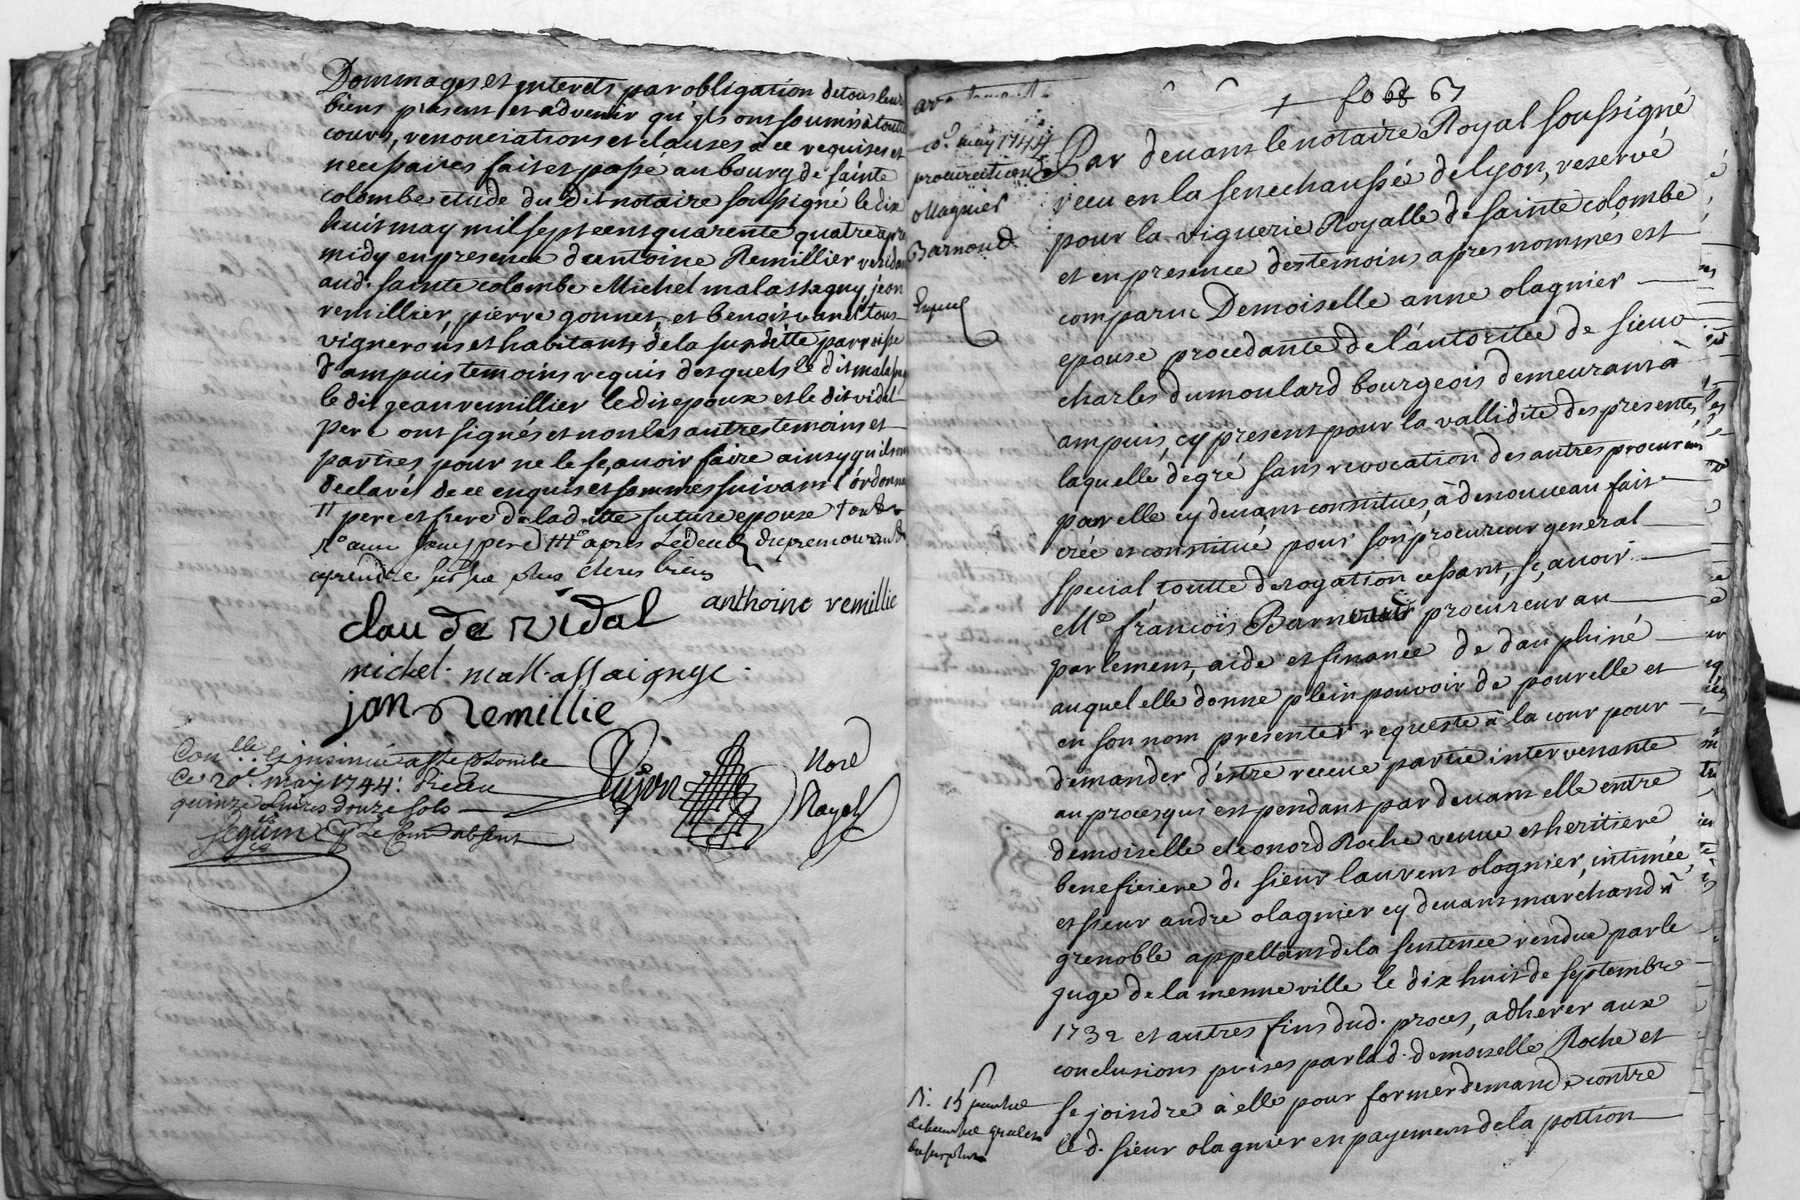 Dommages et interets par obligation de tous leurs
biens present et advenir qu'ils ont soumis à toutte
cours, renonciations et clauses à ce requises et
necessaires fait et passé au bourg de sainte
colombe etude du dit notaire soussigné le dix
huit may mil sept cent quarente quatre apres
midy en presence d'antoine Remillier resident
aud. sainte colombe Michel malassagny jean
remillier, pierre gonnet, et benoit varel tous
vignerons et habitants de la susditte parroisse
d'ampuis temoins requis desquels le dit malassagny
le dit jean remillier le dit epoux et le dit vidal
pere ont signés et non les autres temoins et
parties pour ne le sçavoir faire ainsy qu'ils ont
declaré de ce enquis et sommes suivant l'ordonnance
pere et frere de lad.itte future epouse
apres le deux du premourant
a prendre sur les plus clers biens
claude vidal anthoine remillie
michel mallassaignge
jan Remillie
Con.lle et insinué a Ste Colombe
Ce 20e may 1744: Receu
quinze livres douze sols
Seguin Le Com absent
Noré
Royal
fo 68 67
20e may 1744
procuration
ollagnier
Barnoud
Par devant le notaire Royal soussigné
receu en la senechaussé de lyon, reservé
pour la viguerie Royalle de sainte colombe
et en presence des temoins apres nommés, est
comparue Demoiselle anne olagnier
epouse procedante de l'autoritée de sieur
charles dumoulard bourgeois demeurant à
ampuis, cy present pour la vallidité des presentes,
laquelle de gré sans revocation des autres procureurs
par elle cy devant constitues, à de nouveau fait
crée et constitué pour son procureur general
special toutte derogation cessant, sçavoir
Me françois Barnoud procureur au
parlement, aide et finance de dauphiné
auquel elle donne plein pouvoir de pour elle et
en son nom presenter requeste à la cour pour
demander d'estre receue partie intervenante
au proces qui est pendant par devant elle entre
demoiselle eleonord Roche veuve et heritiere
beneficiere de sieur laurent olagnier, intimée
et sieur andre olagnier cy devant marchand à
grenoble appellant de la sentence rendue par le
juge de la meme ville le dix huit de septembre
1732 et autres fins dud. proces, adherer aux
conclusions prises par lad. demoiselle Roche et
se joindre à elle pour former demande contre
le d. sieur olagnier en payement de la portion